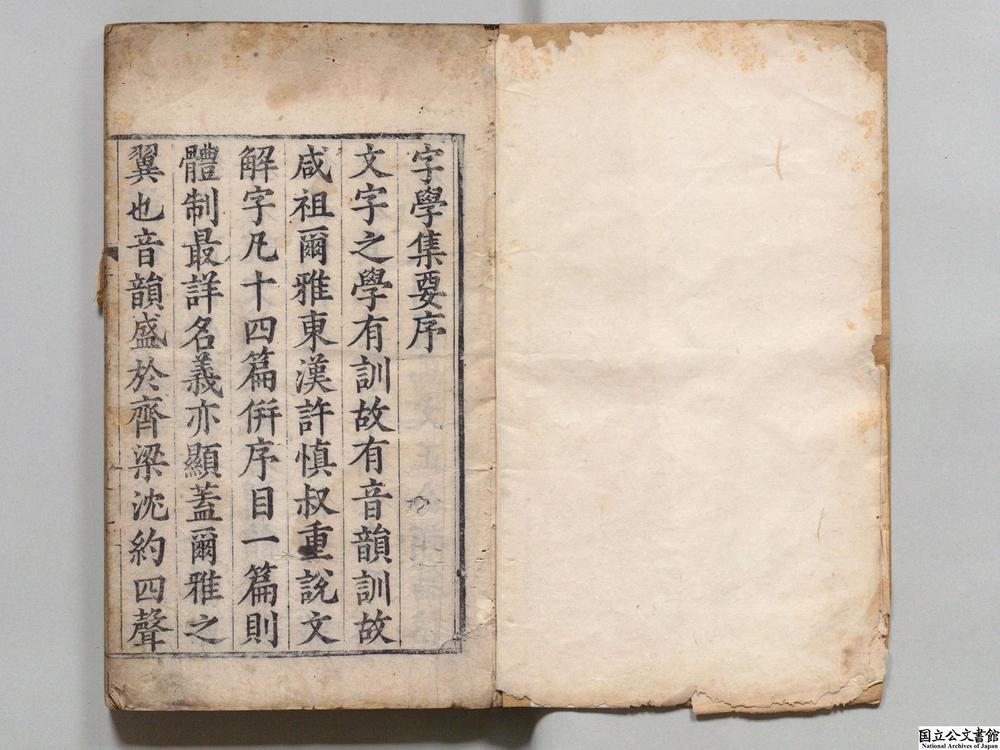 字學集要序
文字之學有訓故有音韻訓故
咸祖爾雅東漢許慎叔重說文
解字凡十四篇併序目一篇則
體制最詳名義亦顯蓋爾雅之
翼也音韻盛於齊梁沈約四聲
国立公文書館
National Archives of Japan